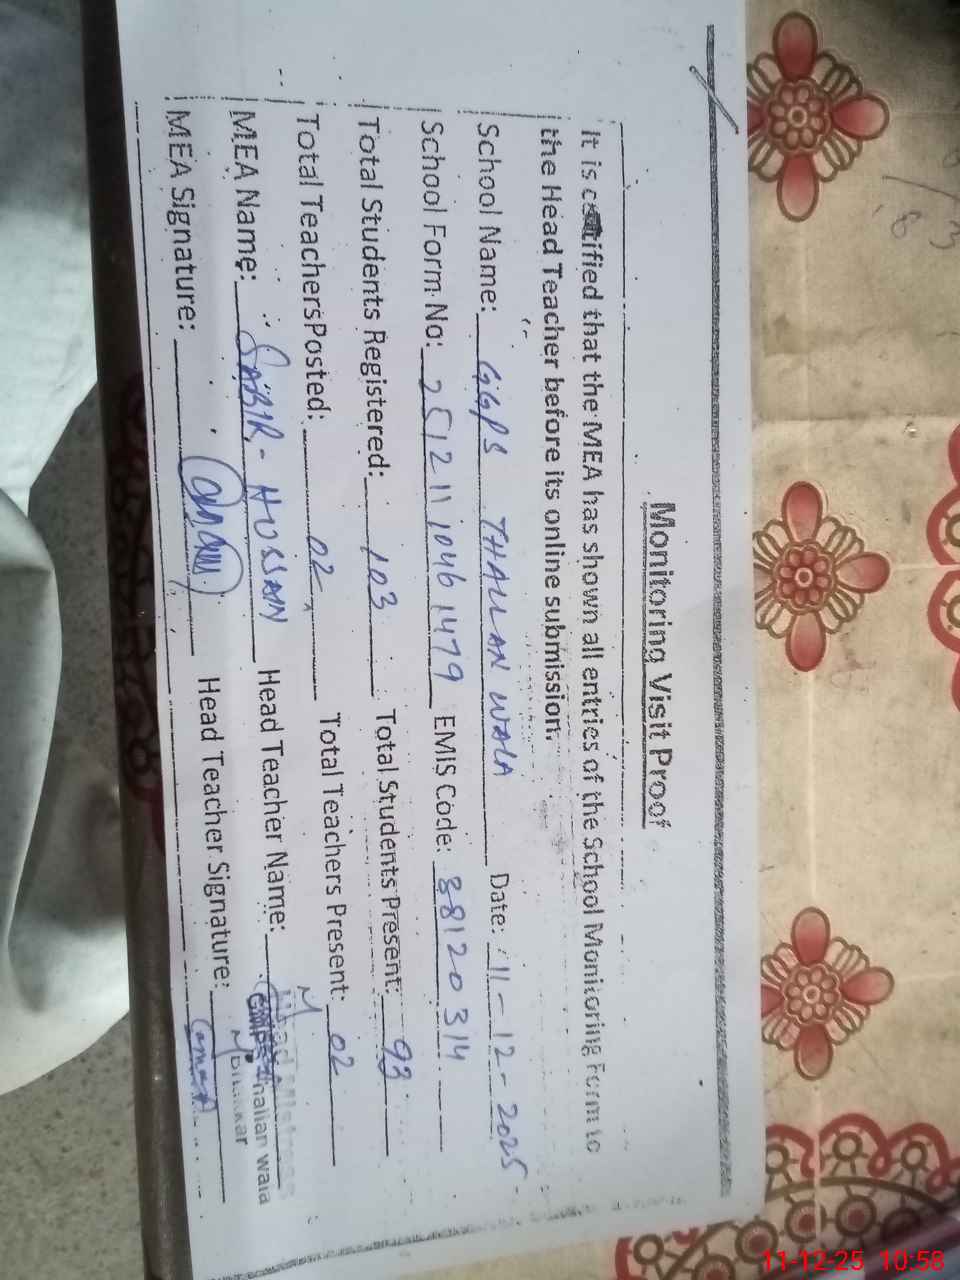 Monitoring Visit Proof
It is certified that the MEA has shown all entries of the School Monitoring Form to
the Head Teacher before its online submission.
School Name: GGPS THALLAN WALA Date: 11-12-2025
School Form No: 25121110461479 EMIS Code: 38120314
Total Students Registered: 103 Total Students Present: 93
Total TeachersPosted: 02 Total Teachers Present: 02
MEA Name: SABIR - HUSSAIN Head Teacher Name:
Head Mistress
Thallan Wala
Bhakkar
MEA Signature: Head Teacher Signature:
11-12-25 10:58